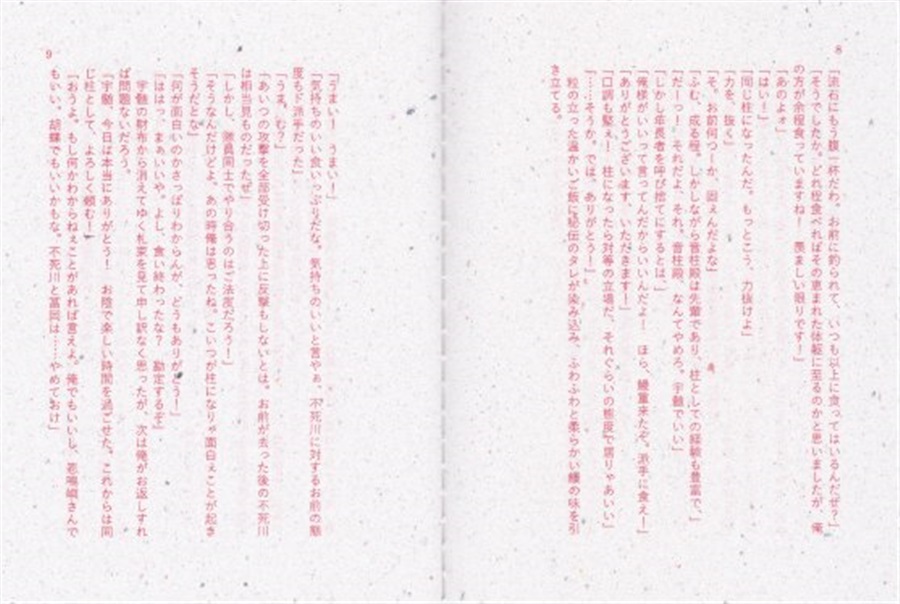 8
「流石にもう腹一杯だわ。お前に釣られて、いつも以上に食ってはいるんだぜ？」
「そうでしたか。どれ程食べればその恵まれた体躯に至るのかと思いましたが、俺
の方が余程食っていますね！　羨ましい限りです！」
「あのよォ」
「はい！」
「同じ柱になったんだ。もっとこう、力抜けよ」
「力を、抜く」
「そ。お前何つーか、固ぇんだよな」
「ふむ、成る程。しかしながら音柱殿は先輩であり、柱としての経験も豊富で、」
「だーっ！　それだよ、それ。音柱殿、なんてやめろ。宇髄でいい」
「しかし年長者を呼び捨てにするとは」
「俺様がいいって言ってんだからいいんだよ！　ほら、鰻重来たぞ。派手に食え！」
「ありがとうございます。いただきます！」
「口調も堅え！　柱になったら対等の立場だ、それぐらいの態度で居りゃあいい」
「……そうか。では、ありがとう！」
　粒の立った温かいご飯に秘伝のタレが染み込み、ふわふわと柔らかい鰻の味を引
き立てる。
9
「うまい！　うまい！」
「気持ちのいい食いっぷりだな。気持ちのいいと言やぁ、不死川に対するお前の態
度もド派手だった」
「うま。む？」
「あいつの攻撃を全部受け切った上に反撃もしないとは。お前が去った後の不死川
は相当見ものだったぜ」
「しかし、隊員同士でやり合うのはご法度だろう！」
「そうなんだけどよ。あの時俺は思ったね。こいつが柱になりゃ面白ぇことが起き
そうだとな」
「何が面白いのかさっぱりわからんが、どうもありがとう！」
「ははっ。まぁいいや。よし、食い終わったな？　勘定するぞ」
　宇髄の財布から消えてゆく札束を見て申し訳なく思ったが、次は俺がお返しすれ
ば問題ないだろう。
「宇髄、今日は本当にありがとう！　お陰で楽しい時間を過ごせた。これからは同
じ柱として、よろしく頼む！」
「おうよ。もし何かわからねぇことがあれば言えよ。俺でもいいし、悲鳴嶼さんで
もいい。胡蝶でもいいかもな。不死川と冨岡は……やめておけ」